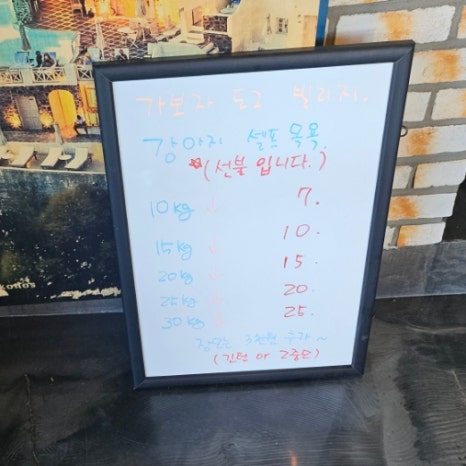 가보자 도그 빌리지.
강아지 셀프 목욕.
*(선불 입니다.)
10kg ↓ 7.
15kg ↓ 10.
20kg ↓ 15.
25kg ↓ 20.
30kg ↓ 25.
장모는 3천원 추가~
konos